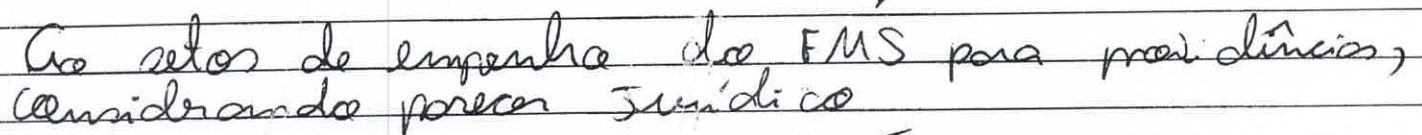 Ao setor de empenho do FMS para providências,
considrando parecer Jurídico